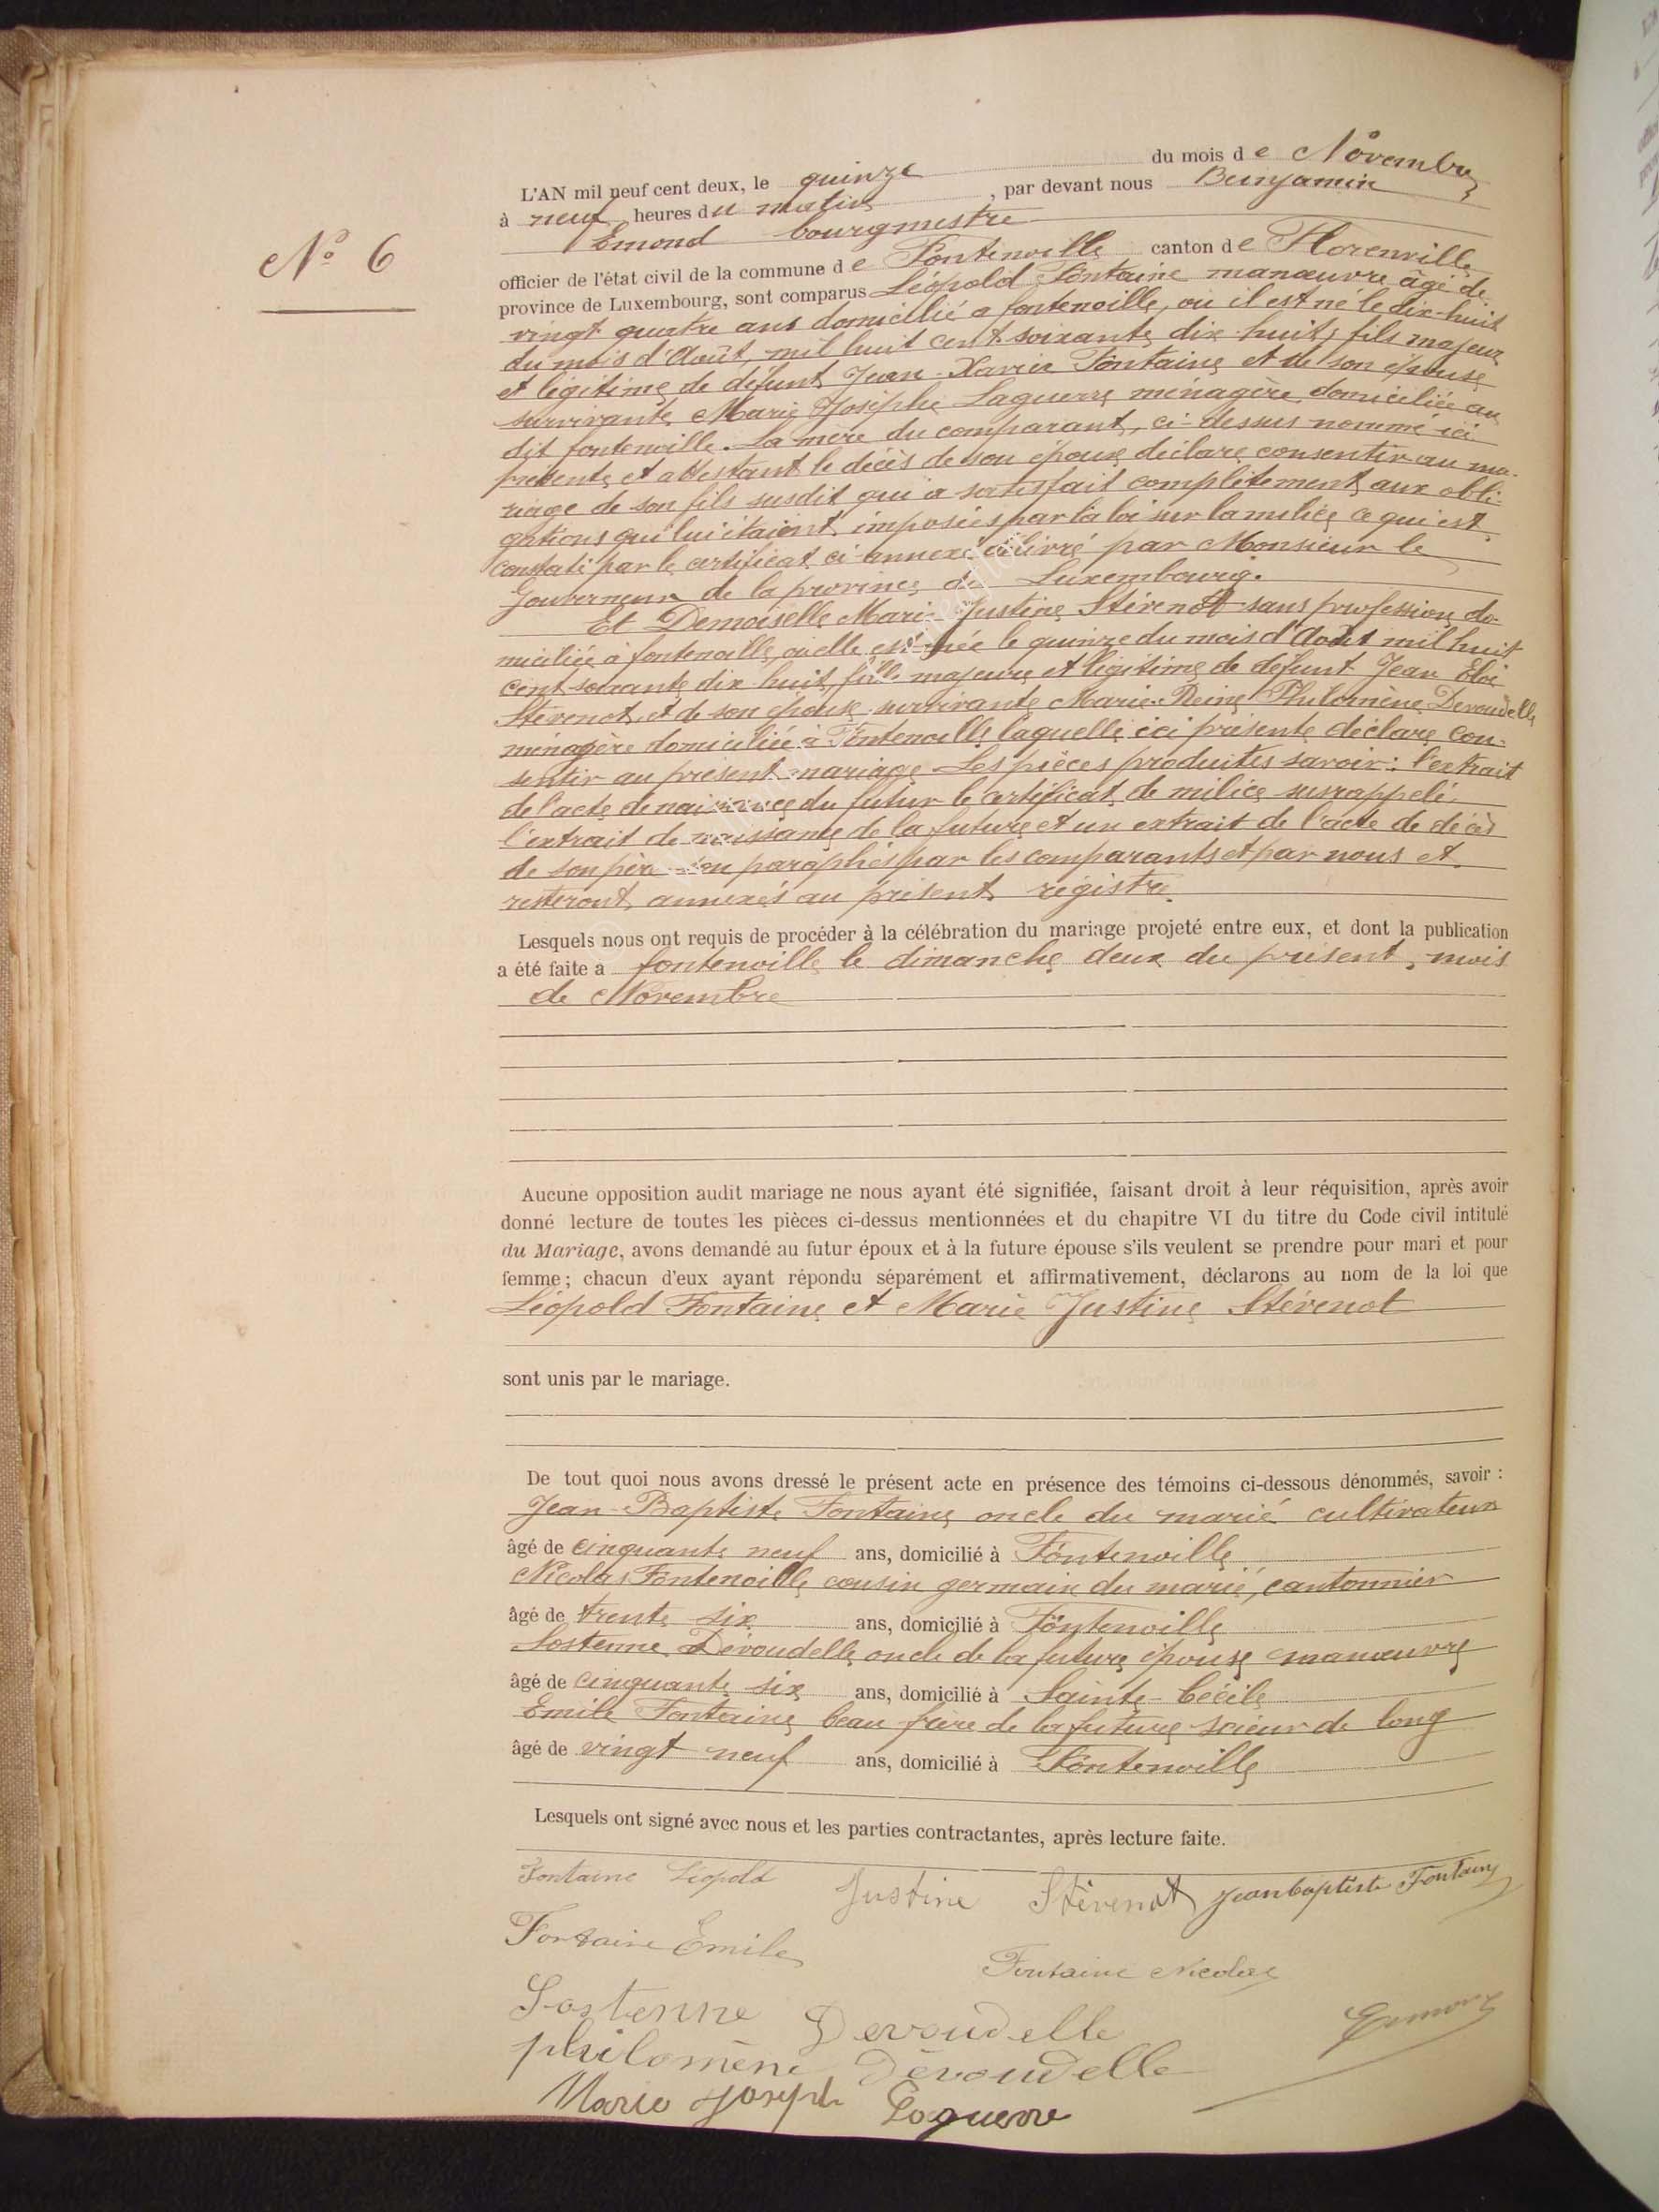 N° 6
L'AN mil neuf cent deux, le quinze du mois de Novembre
à neuf heures du matin, par devant nous Benjamin
Emond bourgmestre
officier de l'état civil de la commune de Fontenoille canton de Florenville
province de Luxembourg, sont comparus Léopold Fontaine manœuvre âgé de
vingt quatre ans domicilié a fontenoille, où il est né le dix-huit
du mois d'Août, mil huit cent soixante dix-huit, fils majeur
et légitime de défunt Jean-Xavier Fontaine et de son épouse
survivante Marie Josèphe Laguerre ménagère domiciliée au
dit fontenoille. La mère du comparant, ci-dessus nommé ici
présente et attestant le décès de son époux déclare consentir au ma-
riage de son fils susdit qui a satisfait complètement aux obli-
gations qui lui étaient imposées par la loi sur la milice ce qui est
constaté par le certificat ci-annexé délivré par Monsieur le
Gouverneur de la province de Luxembourg.
Et Demoiselle Marie Justine Stévenot sans profession do-
miciliée à fontenoille, où elle est née le quinze du mois d'Août mil huit
cent soixante dix-huit, fille majeure et légitime de défunt Jean Eloi
Stévenot, et de son épouse survivante Marie-Reine Philomène Devoudelle
ménagère domiciliée à Fontenoille laquelle ici présente déclare con-
sentir au présent mariage. Les pièces produites savoir: l'extrait
de l'acte de naissance du futur le certificat de milice susrappelé,
l'extrait de naissance de la future et un extrait de l'acte de décès
de son père paraphés par les comparants et par nous et
resteront annexés au présent régistre.
Lesquels nous ont requis de procéder à la célébration du mariage projeté entre eux, et dont la publication
a été faite a fontenoille le dimanche deux du présent mois
de Novembre
Aucune opposition audit mariage ne nous ayant été signifiée, faisant droit à leur réquisition, après avoir
donné lecture de toutes les pièces ci-dessus mentionnées et du chapitre VI du titre du Code civil intitulé
du Mariage, avons demandé au futur époux et à la future épouse s'ils veulent se prendre pour mari et pour
femme; chacun d'eux ayant répondu séparément et affirmativement, déclarons au nom de la loi que
Léopold Fontaine et Marie Justine Stévenot
sont unis par le mariage.
De tout quoi nous avons dressé le présent acte en présence des témoins ci-dessous dénommés, savoir :
Jean-Baptiste Fontaine oncle du marié cultivateur
âgé de cinquante neuf ans, domicilié à Fontenoille
Nicolas Fontenoille cousin germain du marié, cantonnier
âgé de trente six ans, domicilié à Fontenoille
Sostenne Dévoudelle oncle de la future épouse manœuvre
âgé de cinquante six ans, domicilié à Sainte-Cécile
Emile Fontaine beau frère de la future scieur de long
âgé de vingt neuf ans, domicilié à Fontenoille
Lesquels ont signé avec nous et les parties contractantes, après lecture faite.
Fontaine Léopold Justine Stévenot Jeanbaptiste Fontaine
Fontaine Emile Fontaine Nicolas
Sostenne Devoudelle Emond
philomène Dévoudelle
Marie Joseph Laguerre